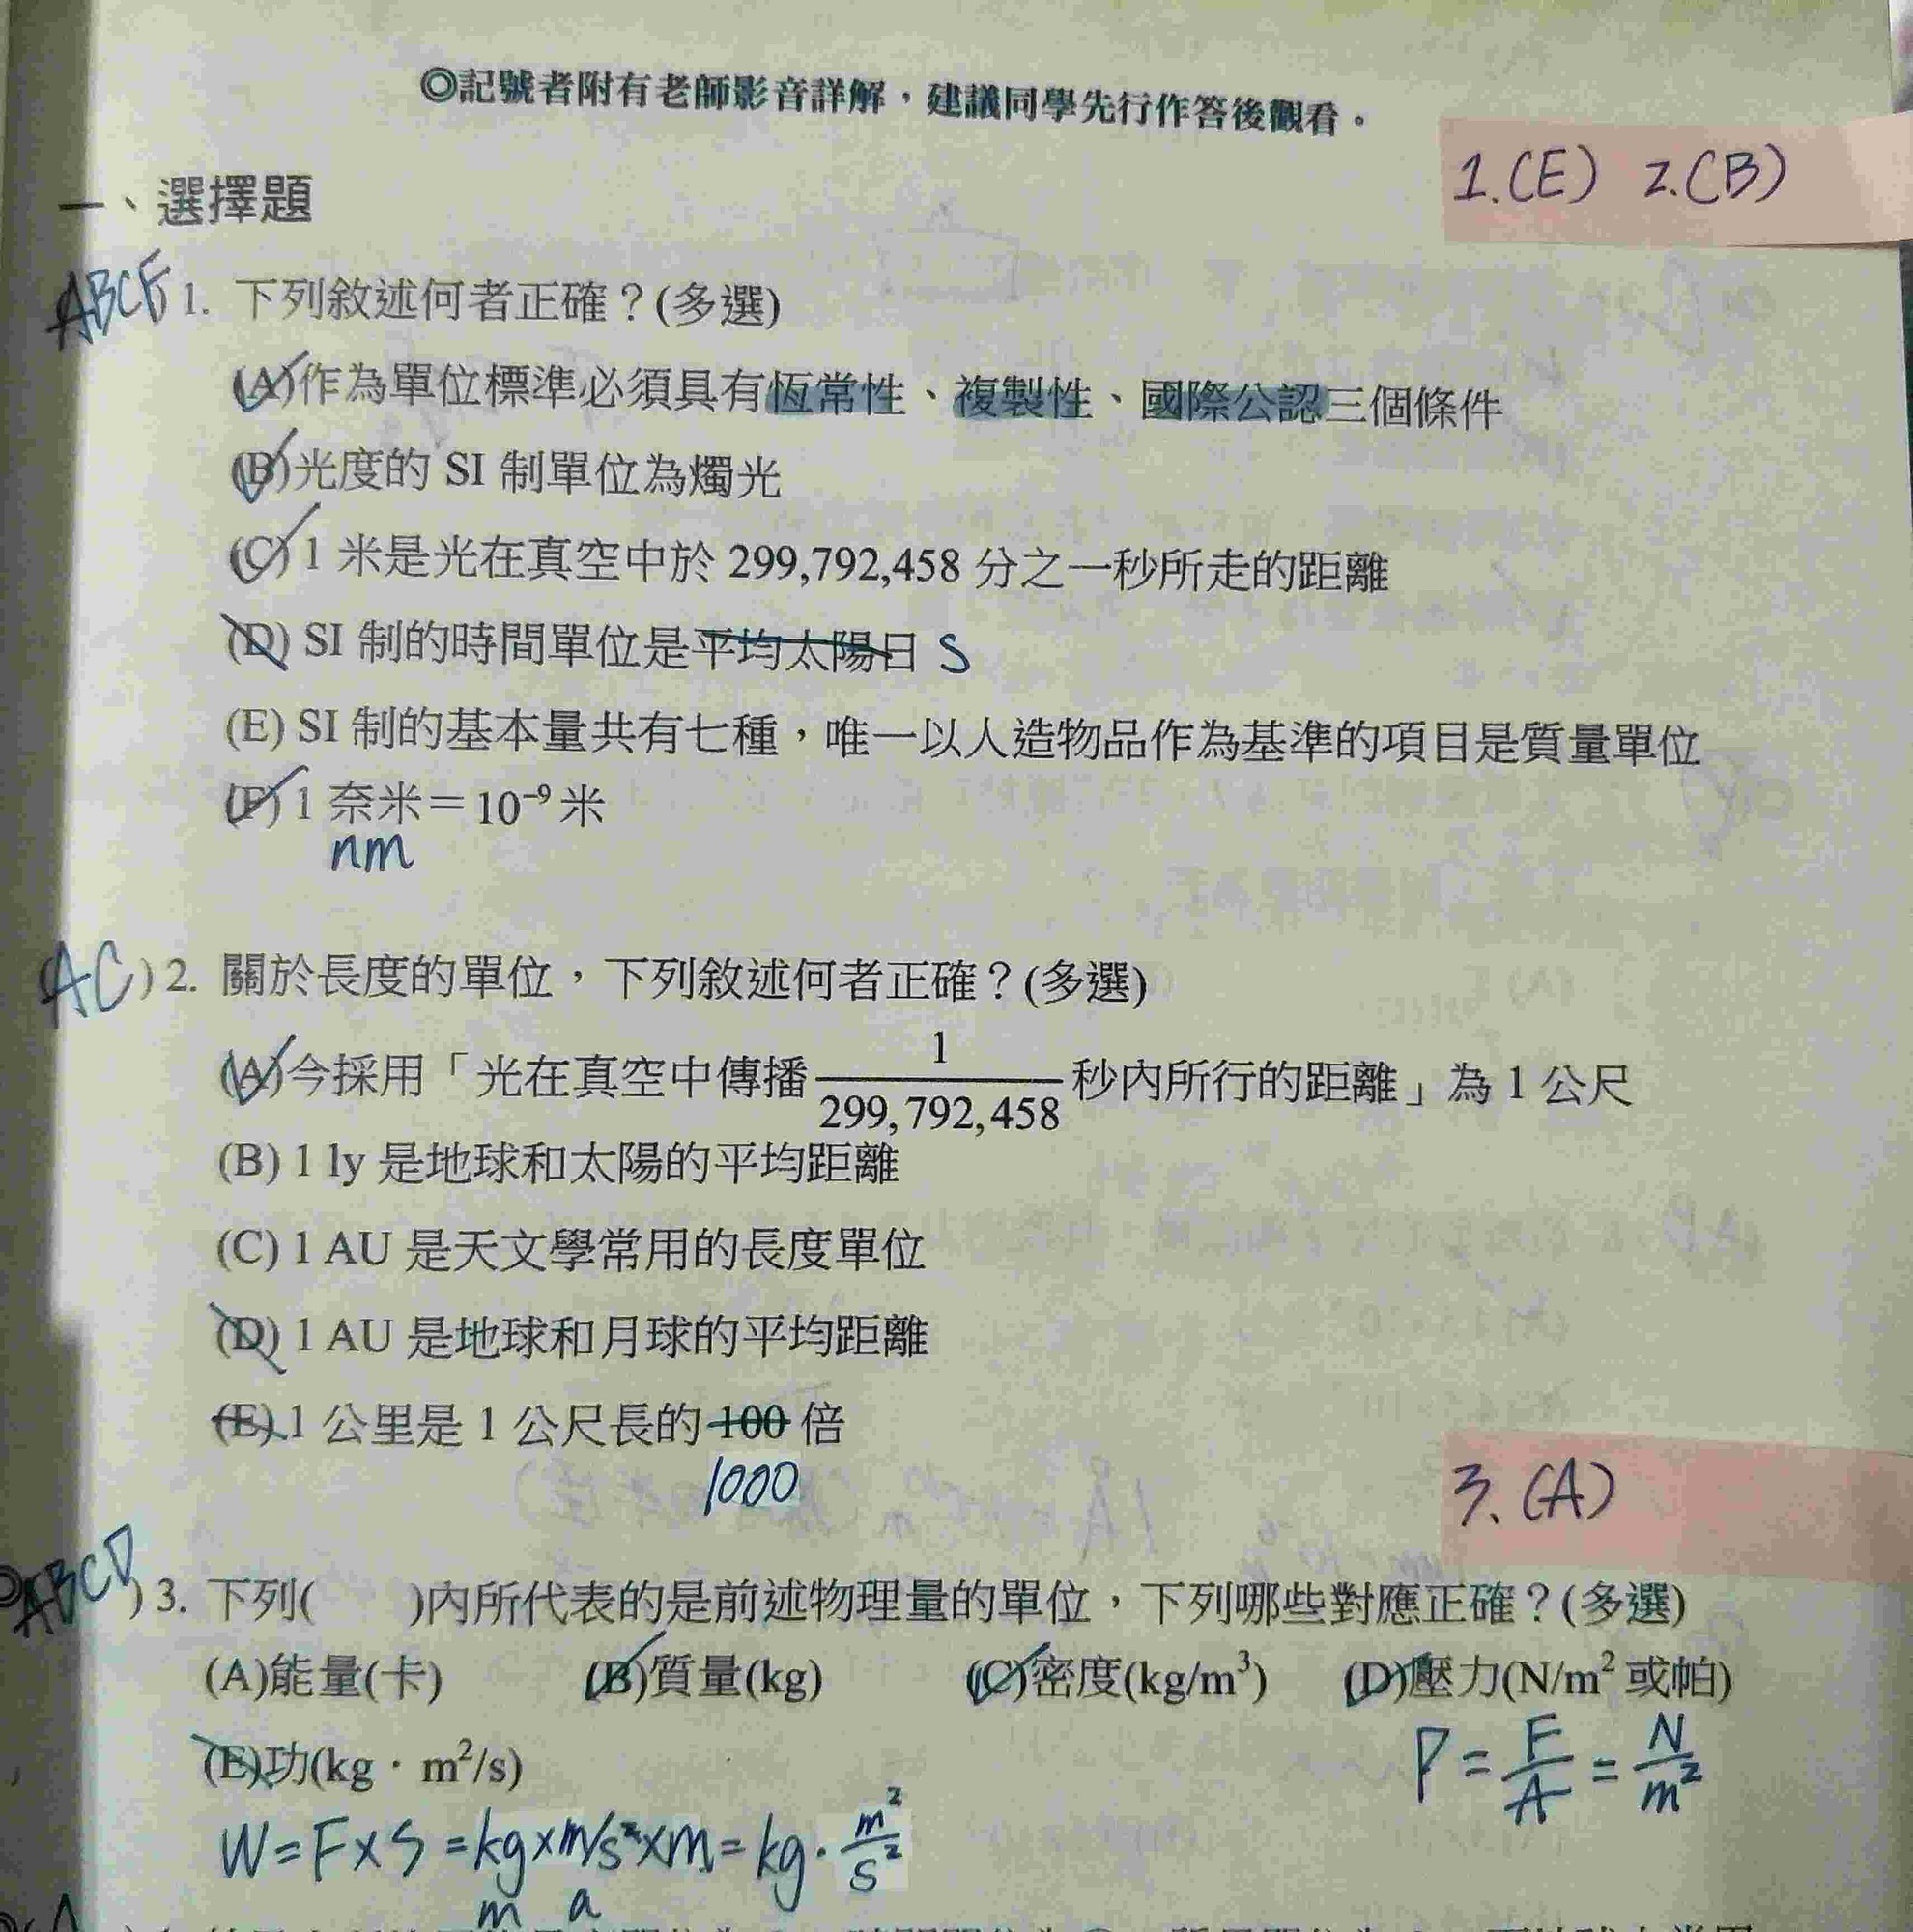 ◎記號者附有老師影音詳解，建議同學先行作答後觀看。
1.(E) 2.(B)
一、選擇題
ABCF 1. 下列敘述何者正確？(多選)
(A)作為單位標準必須具有恆常性、複製性、國際公認三個條件
(B)光度的 SI 制單位為燭光
(C) 1 米是光在真空中於 299,792,458 分之一秒所走的距離
(D) SI 制的時間單位是平均太陽日 S
(E) SI 制的基本量共有七種，唯一以人造物品作為基準的項目是質量單位
(F) 1 奈米＝10⁻⁹ 米
nm
(AC) 2. 關於長度的單位，下列敘述何者正確？(多選)
(A)今採用「光在真空中傳播 1/299,792,458 秒內所行的距離」為 1 公尺
(B) 1 ly 是地球和太陽的平均距離
(C) 1 AU 是天文學常用的長度單位
(D) 1 AU 是地球和月球的平均距離
(E) 1 公里是 1 公尺長的 100 倍
1000
3.(A)
◎ABCD) 3. 下列( )內所代表的是前述物理量的單位，下列哪些對應正確？(多選)
(A)能量(卡) (B)質量(kg) (C)密度(kg/m³) (D)壓力(N/m² 或帕)
(E)功(kg · m²/s)
P = F/A = N/m²
W = F × S = kg × m/s² × m = kg · m²/s²
m a